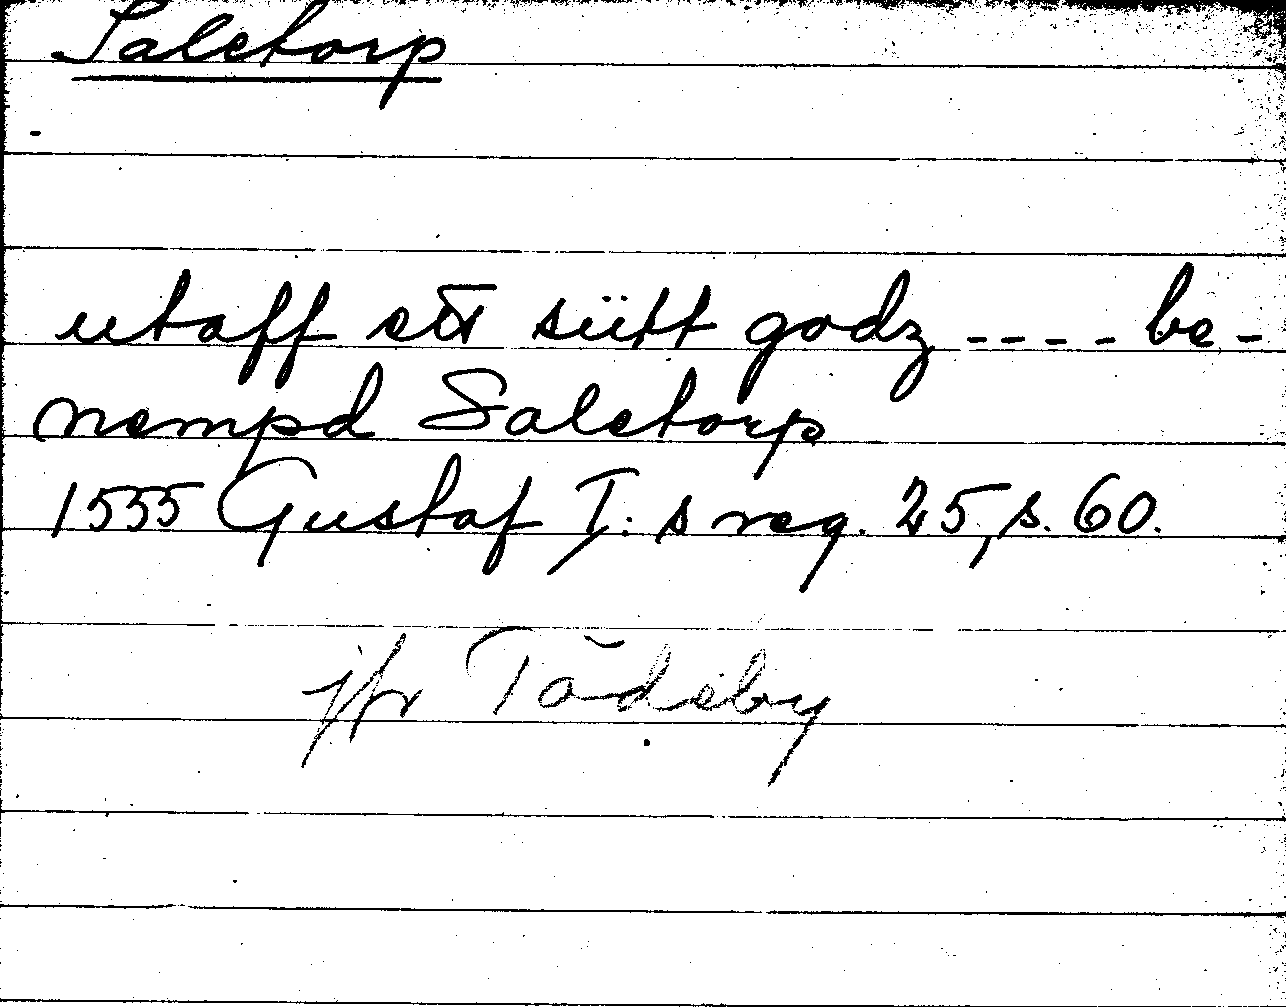 Saletorp
utaff ett sütt godz ---- be-
nempd Saletorp
1555 Gustaf I:s reg. 25, s. 60.
jfr Tådeby